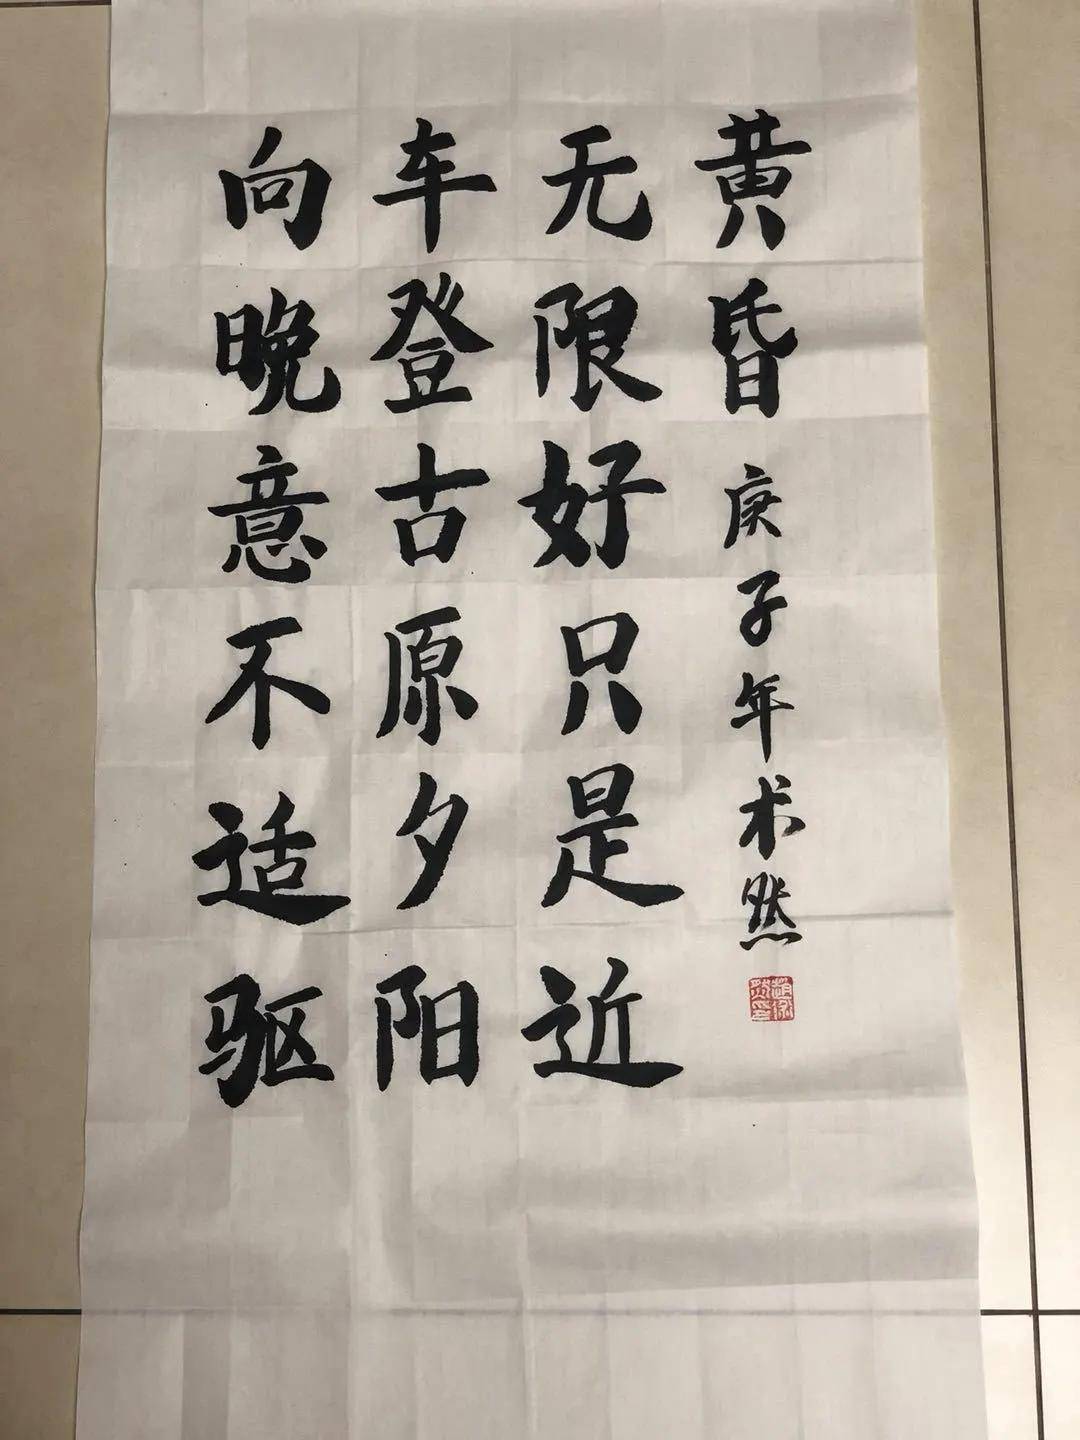 向晚意不适驱
车登古原夕阳
无限好只是近
黄昏 庚子年术然